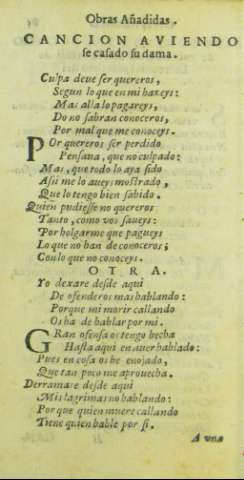 Obras Añadidas.
CANCION AVIENDO
se casado su dama.
Culpa deve ser quereros,
Segun lo que en mi hazeys:
Mas alla lo pagareys,
Do no sabran conoceros,
Por mal que me conoceys.
POr quereros ser perdido
Pensava, que no culpado:
Mas, que todo lo aya sido
Assi me lo aueys mostrado,
Que lo tengo bien sabido.
Quien pudiesse no quereros
Tanto, como vos saueys:
Por holgarme que pagueys
Lo que no han de conoceros;
Con lo que no conoceys.
OTRA.
Yo dexare desde aqui
De ofenderos mas hablando:
Porque mi morir callando
Os ha de hablar por mi.
GRan ofensa os tengo hecha
Hasta aqui en auer hablado:
Pues en cosa os he enojado,
Que tan poco me aprouecha.
Derramare desde aqui
Mis lagrimas no hablando:
Porque quien muere callando
Tiene quien hable por si.
A vna